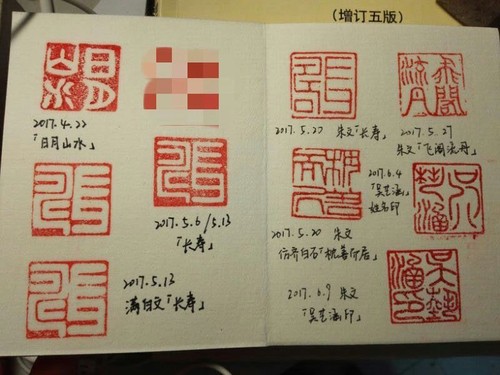 （增订五版）
2017.4.22
「日月山水」
2017.5.6/5.13
「长寿」
2017.5.13
满白文「长寿」
2017.5.20 朱文「长寿」
2017.5.27
朱文「飞阁流丹」
2017.6.4
「吴艺涵」
姓名印
2017.5.20 朱文
2017.6.9 朱文
「吴艺涵印」